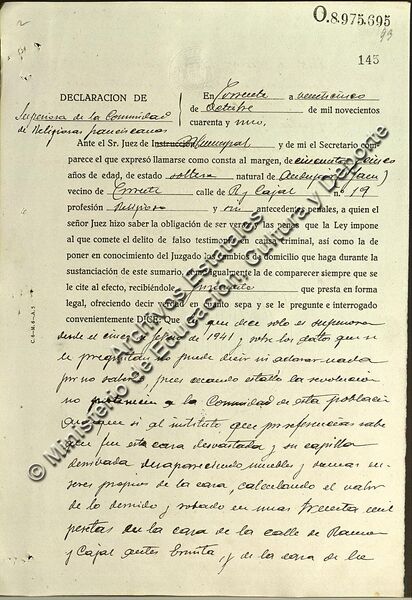 2
O.8.975.695
93
145
DECLARACION DE
Superiora de la Comunidad
de Religiosas franciscanas
En Torrente a veinticinco
de Octubre de mil novecientos
cuarenta y uno.
Ante el Sr. Juez de Instrucción Municipal y de mi el Secretario com-
parece el que expresó llamarse como consta al margen, de cincuenta y cinco
años de edad, de estado soltera natural de (Jaen)
vecino de Torrente calle de R y Cajal n.º 19
profesión Religiosa y sin antecedentes penales, a quien el
señor Juez hizo saber la obligación de ser veraz y las penas que la Ley impone
al que comete el delito de falso testimonio en causa criminal, así como la de
poner en conocimiento del Juzgado los cambios de domicilio que haga durante la
sustanciación de este sumario, e igualmente la de comparecer siempre que se
le cite al efecto, recibiéndole juramento que presta en forma
legal, ofreciendo decir verdad en cuanto sepa y se le pregunte e interrogado
convenientemente DICE: Que que dece solo es superiora
desde el cinco de de 1941 y sobre los datos que se
le preguntan no puede decir ni aclarar nada
por no saberlo, pues cuando estalló la revolución
no pertenecia a la Comunidad de esta población
aunque si al instituto que por referencias sabe
que fue esta casa devastada y su capilla
derribada desapareciendo muebles y demas en-
seres propios de la casa, calculando el valor
de lo derruido y robado en unas treinta mil
pesetas en la casa de la calle de Ramon
y Cajal antes Ermita, y de la casa de la
© Ministerio de Educación, Cultura y Deporte
Archivos Estatales